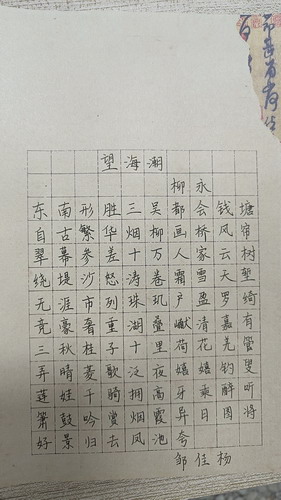 望海潮
柳永
东南形胜三吴都会钱塘
自古繁华烟柳画桥风帘
翠幕参差十万人家云树
绕堤沙怒涛卷霜雪天堑
无涯市列珠玑户盈罗绮
竞豪奢重湖叠巘清嘉有
三秋桂子十里荷花羌管
弄晴菱歌泛夜嬉嬉钓叟
莲娃千骑拥高牙乘醉听
箫鼓吟赏烟霞异日图将
好景归去凤池夸
邹佳杨